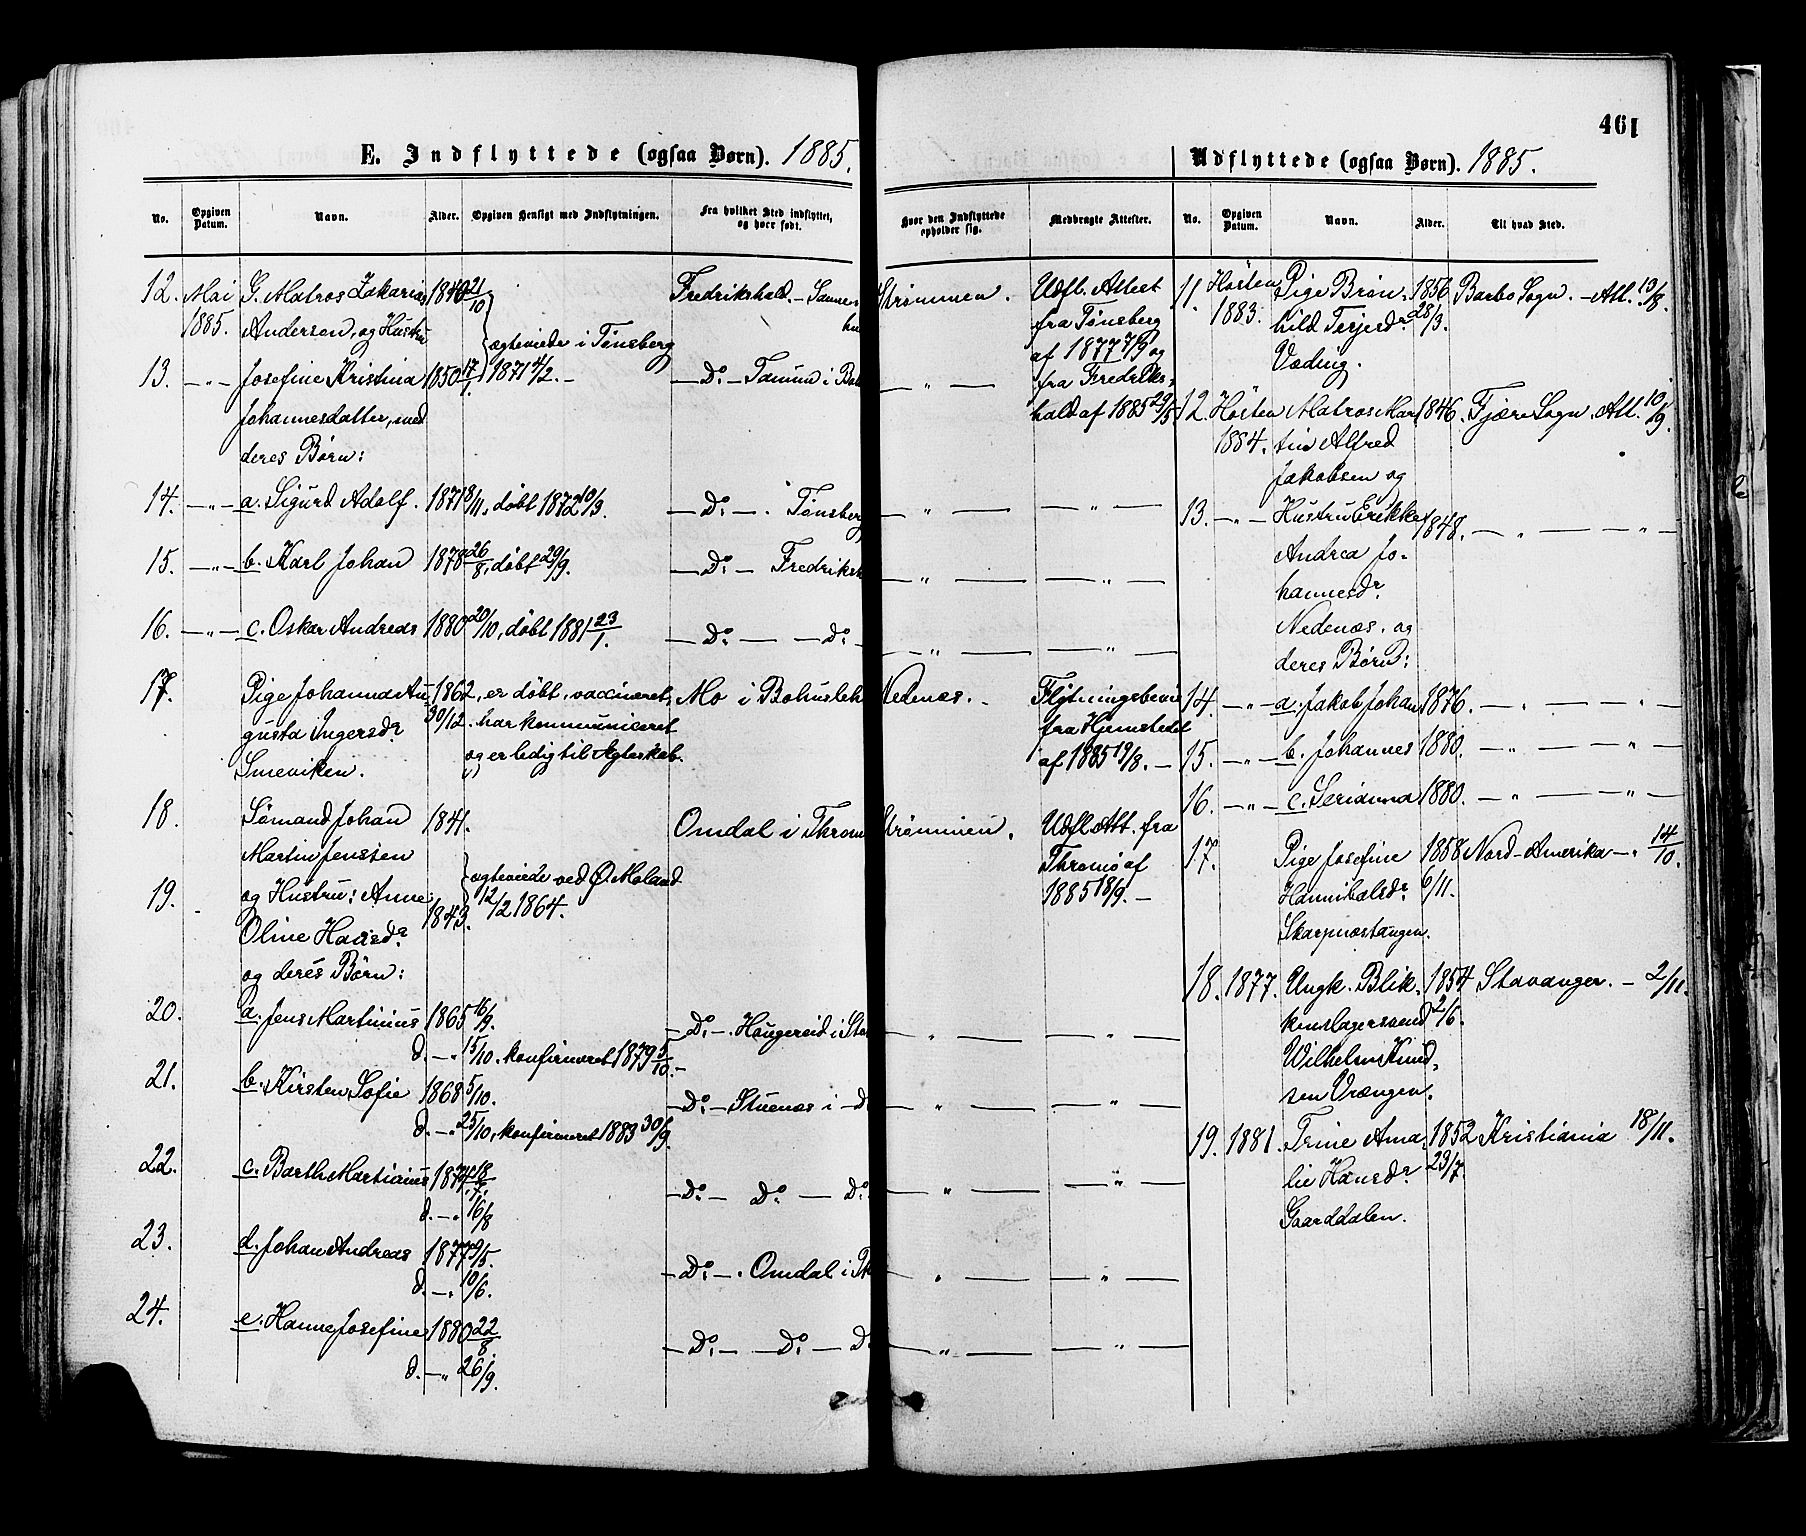 461
E. Indflyttede (ogsaa Børn). 1885.
No.
Opgiven Datum.
Navn.
Alder.
Opgiven Hensigt med Indflytningen.
Fra hvilket Sted indflyttet, og hvor født.
Hvor den Indflyttede opholder sig.
Medbragte Attester.
12. Mai G. Matros Zakarias 1840 21/10 Fredrikshald. - Sannes Strømmen. Udfl. Attest
1885. Andersen, og Hustru fra Tønsberg
ægteviede i Tønsberg af 1877 7/9 og
13. -"- Josefine Kristina 1850 17/ 1871 4/2. - - Do. - Tanum i Bo — " — fra Fredriks-
Johannesdatter, med hald af 1885 29/5
deres Børn:
14. -"- a. Sigurd Adolf. 1871 8/11, døbt 1872 10/3. - Do. - Tønsberg — " — — " —
15. -"- b. Karl Johan 1878 26/8, døbt 29/9. - Do. - Fredriksh — " — — " —
16. -"- c. Oskar Andreas 1880 20/10, døbt 1881 23/1. - Do. - - Do. - — " — — " —
17. Pige Johanna Au- 1862 , er døbt, vaccineret, Mo i Bohusleh Nedenæs. Flytningsbevis
gusta Ingersdr 30/12. har kommuniceret fra Hjemstedet
Smeviken. og er ledig til Ægteskab. af 1885 19/8. -
18. Sømand Johan 1841. Omdal i Throm Strømmen. Udfl. Att. fra
Martin Jenssen Thromø af
ægteviede ved Ø Moland 1885 18/9. -
19. og Hustru: Anne 12/2 1864.
Oline Hansdr. 1843.
og deres Børn:
20. a. Jens Martinius 1865 16/9. - Do. - Haugereid i Sto — " — — " —
d. -" 15/10. konfirmeret 1879 5/10. -
21. b. Kirsten Sofie 1868 5/10. - Do. - Stuenæs i - D — " — — " —
d. -" 25/10, konfirmeret 1883 30/9.
22. c. Barth Martinius 1874 18/7. - Do. - Do. - Do. — " — — " —
d. -" 16/8
23. d. Johan Andreas 1877 9/5. - Do. - Omdal i Th — " — — " —
d. -" 10/6.
24. e. Hanne Josefine 1880 22/8. - Do. - Do. - D — " — — " —
d. -" 26/9.
Udflyttede (ogsaa Børn). 1885.
No.
Opgiven Datum.
Navn.
Alder.
Til hvad Sted.
11. Høsten Pige Brøn- 1856 Barbo Sogn. - Att. 19/8.
1883. hild Terjesdr 28/3.
Væding.
12. Høsten Matros Mar- 1846. Fjære Sogn. Att. 10/9.
1884. tin Alfred
Jakobsen og
13. -"- Hustru Erikka 1848. — " — " —
Andrea Jo-
hannesdr.
Nedenæs, og
deres Børn:
14. -"- a. Jakob Johan 1876. — " — " —
15. -"- b. Johannes 1880. — " — " —
16. -"- c. Serianna 1880. — " — " —
17. Pige Josefine 1858 Nord-Amerika -. 14/10.
Hannibalsdr 6/11.
Skarpnæstangen.
18. 1877. Ungk. Blik- 1854 Stavanger. - 2/11.
kenslagersvend 2/6.
Wilhelm Knud-
sen Vrængen.
19. 1881. Trine Ama- 1852 Kristiania 18/11.
lie Hansdr 23/7.
Gaarddalen.